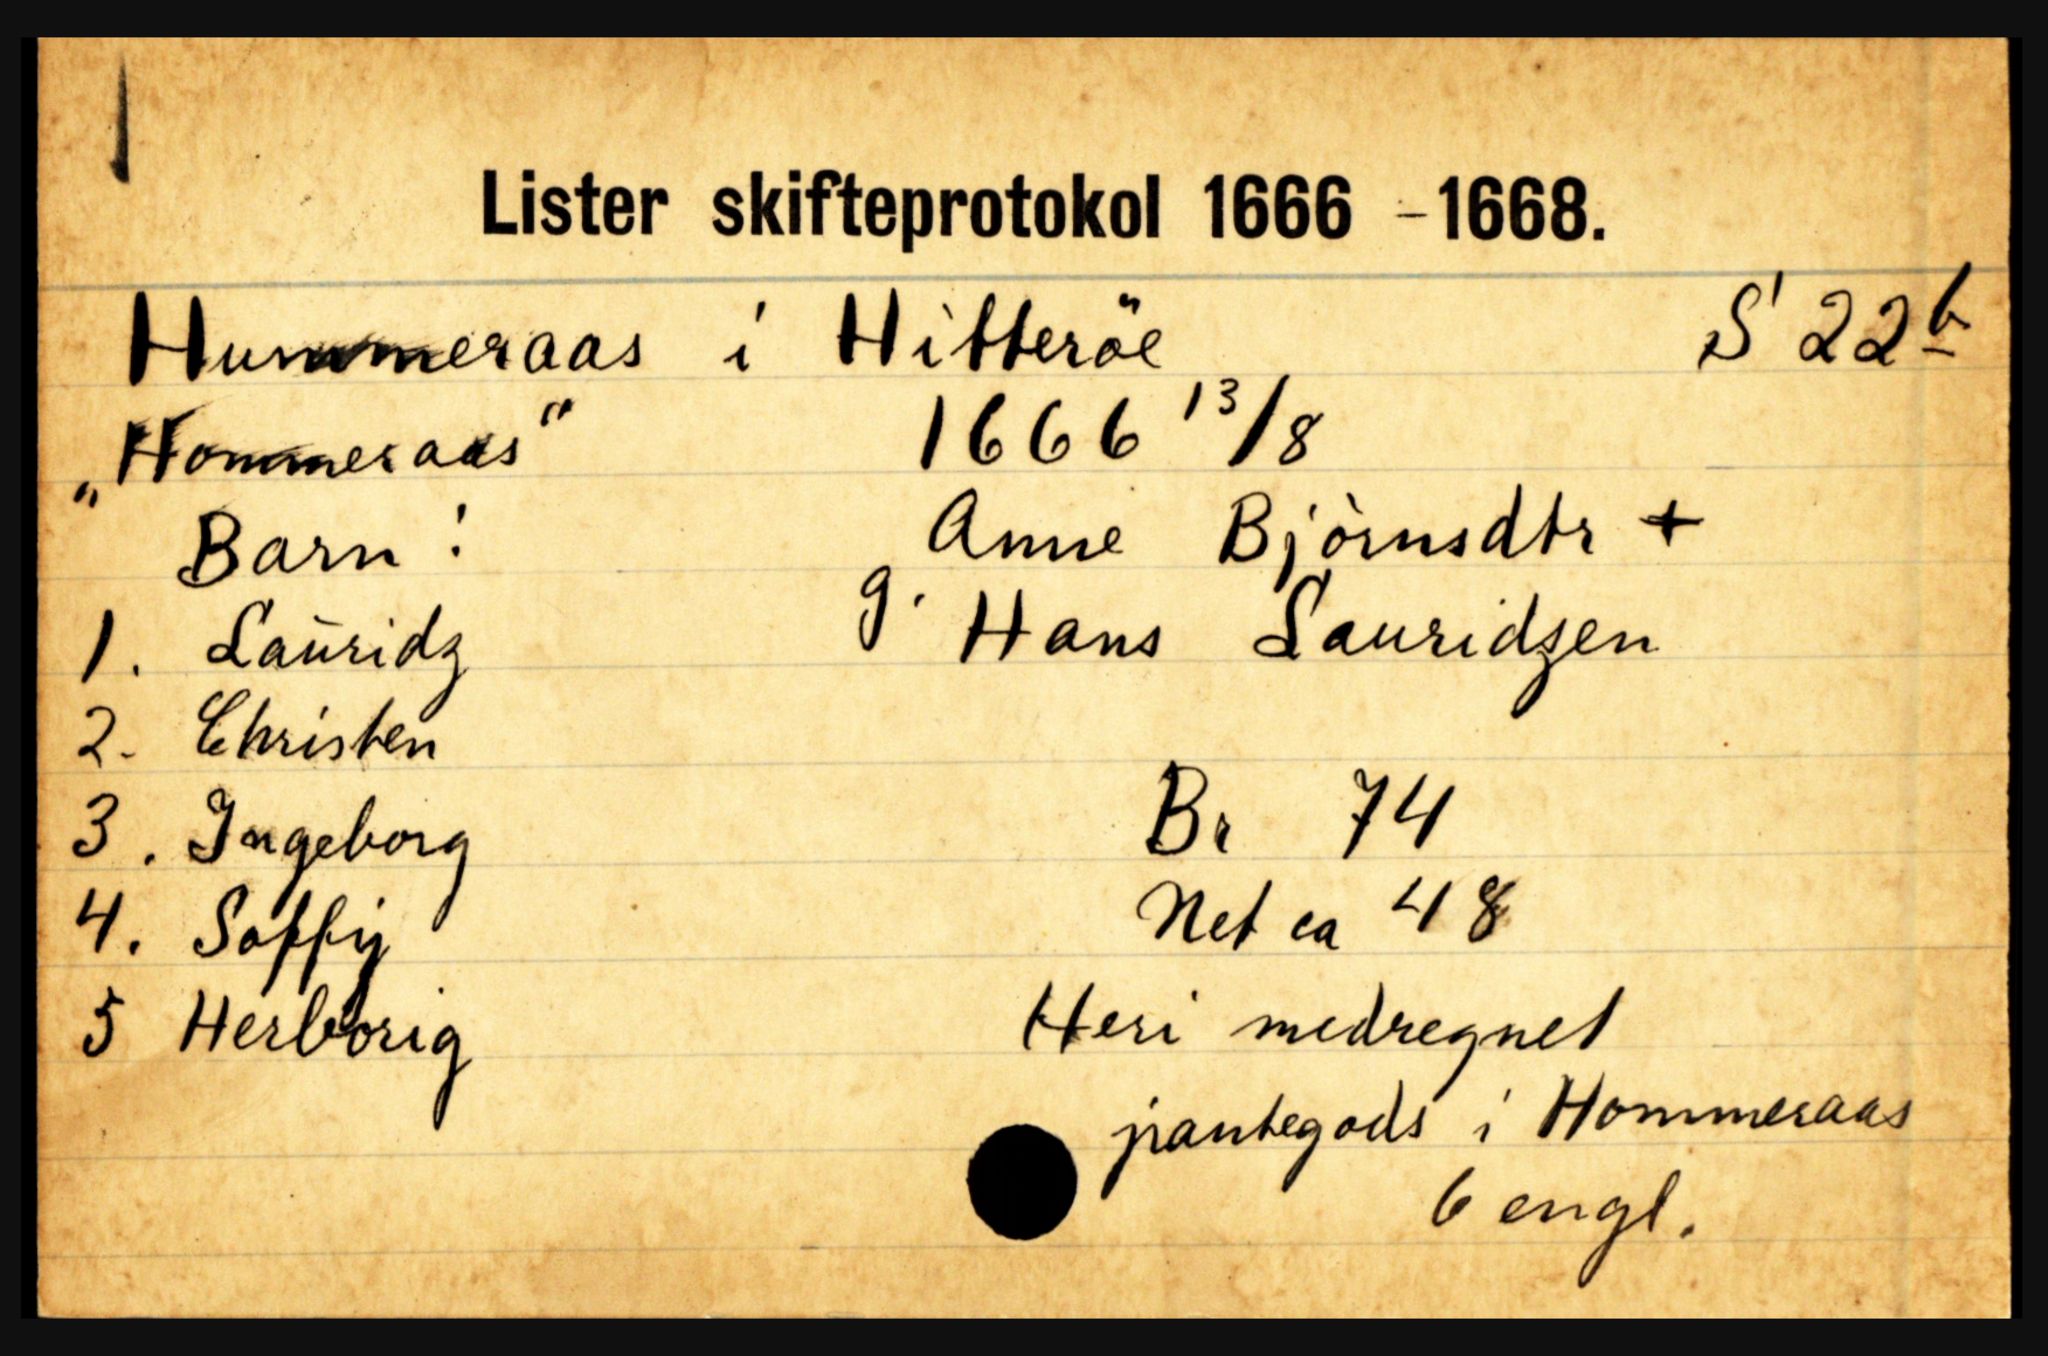 Lister skifteprotokol 1666 - 1668.
Hummeraas i Hitteröe S 22 b
"Hommeraas" 1666 13/8
Barn: Anne Björnsdtr +
g. Hans Lauridzen
1. Lauridz
2. Christen
3. Ingeborg Br 74
4. Soffij Net ca 48
5 Herborig Heri medregnet
pantegods i Hommeraas
6 engl.